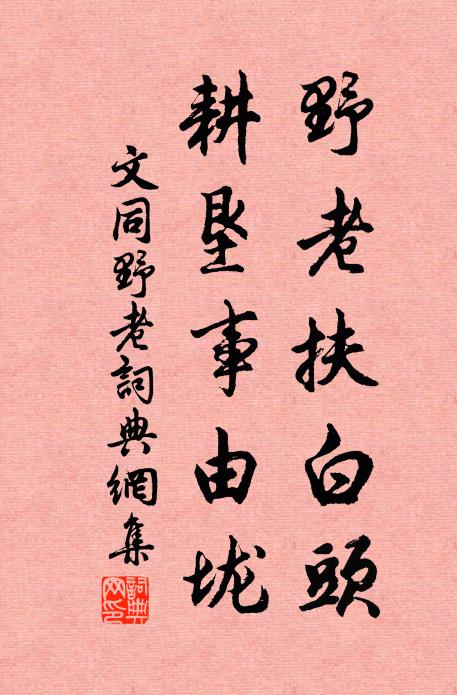 野老扶白頭
耕垦事由垅
文同野老詞典網集
詞典網印